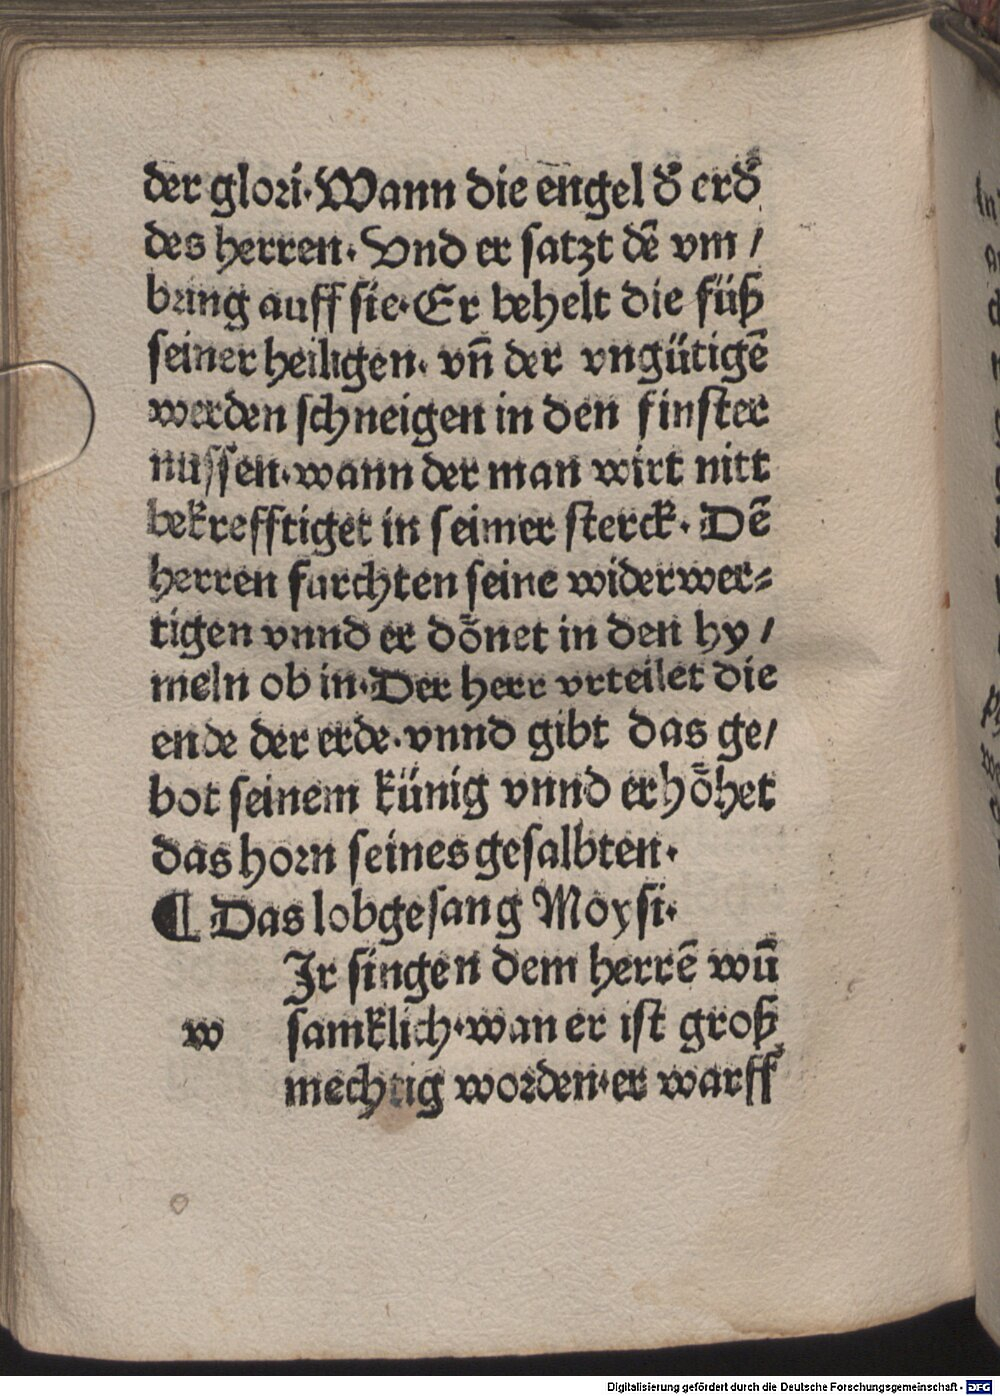 der glori·Wann die engel d̕ erd̕
des herren· Vnd er satzt dē vm /
bring auff sie·Er behelt die füß
seiner heiligen· vn̄ der vngütigē
werden schneigen in den finster
nussen·wann der man wirt nitt
bekrefftiget in seimer sterck· Dē
herren furchten seine widerwer⸗
tigen vnnd er dōnet in den hy /
meln ob in·Der herr vrteilet die
ende der erde·vnnd gibt das ge/
bot seinem künig vnnd erhōhet
das horn seines gesalbten·
¶ Das lobgesang Moysi·
Jr singen dem herrē wū
w samklich·wan er ist groß
mechtig worden·er warff
Digitalisierung gefördert durch die Deutsche Forschungsgemeinschaft - DFG